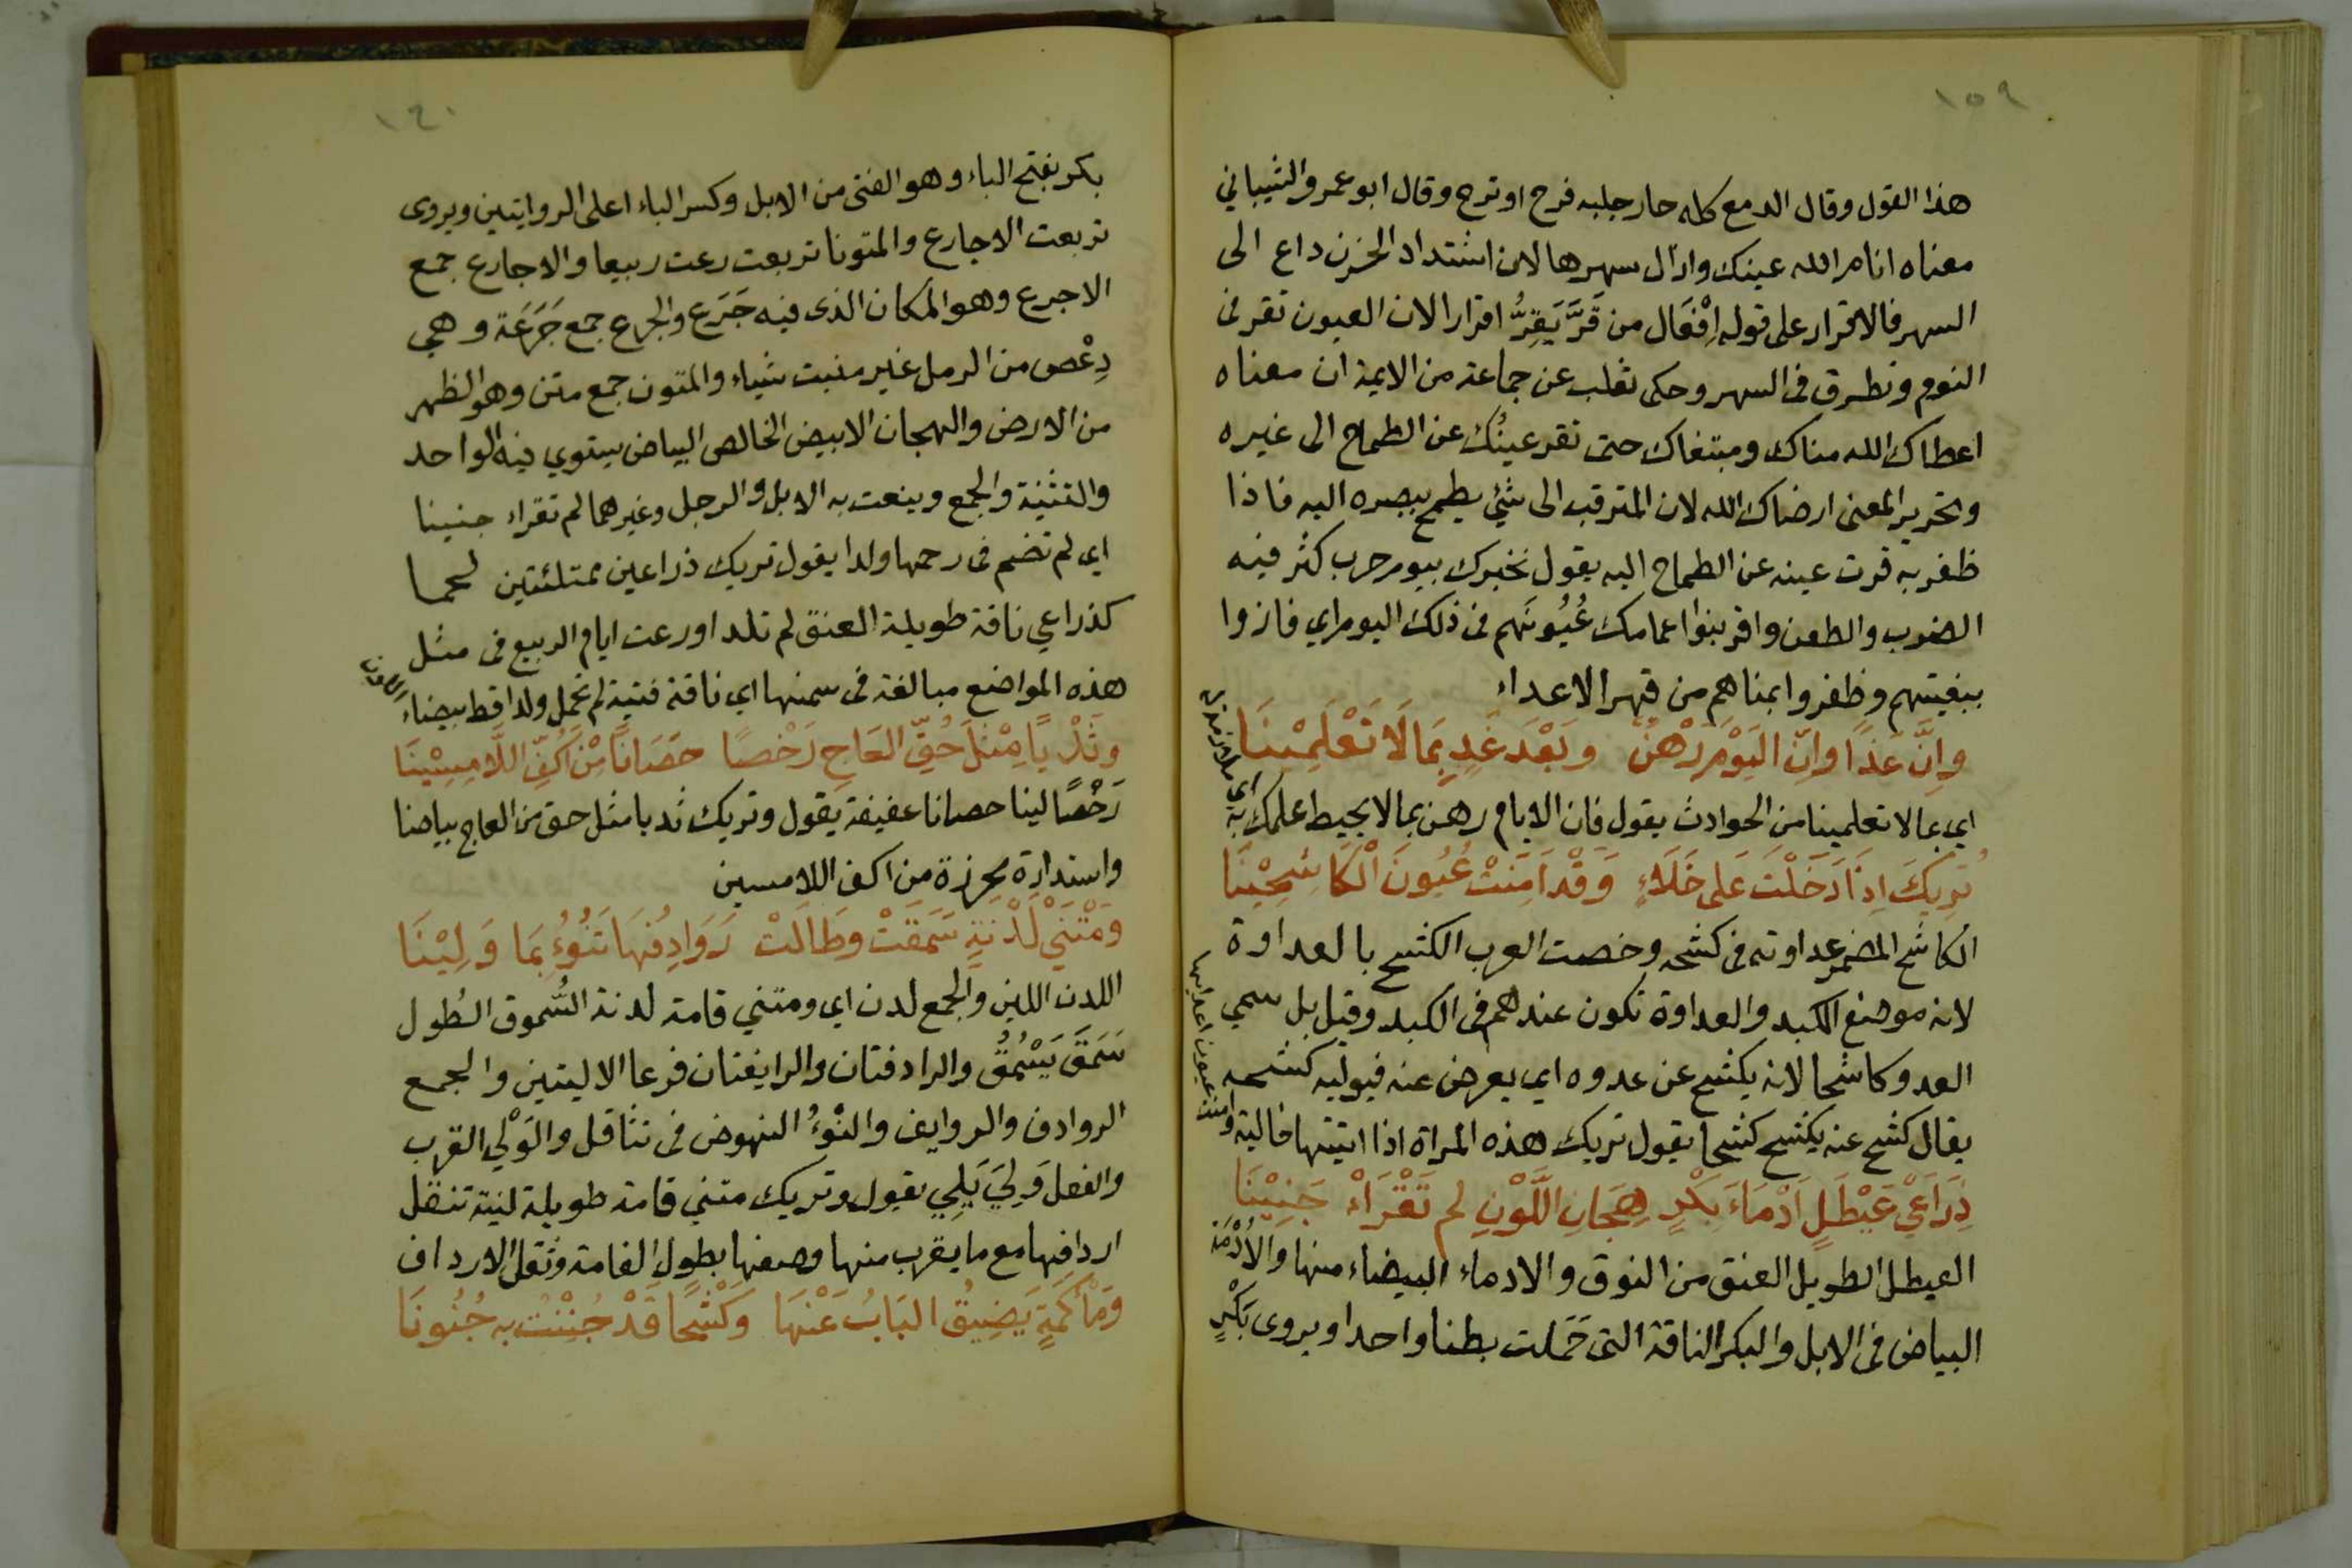 ١٥٩
هذا القول وقال الدمع كله حار جلبه فرح او ترح وقال ابو عمرو الشيباني
معناه انام الله عينك وازال سهرها لان اشتداد الحزن داع الى
السهر فالاقرار على قوله اِفْعَال من قَرَّ يَقِرُّ اقرارا لان العيون تقر فى
النوم وتطرق فى السهر وحكى ثعلب عن جماعة من الايمة ان معناه
اعطاك الله مناك ومبتغاك حتى تقر عينُك عن الطماح الى غيره
وتحرير المعنى ارضاك الله لان المترقب الى شئي يطمح ببصره اليه فاذا
ظفر به قرت عينه عن الطماح اليه يقول نخبرك بيوم حرب كثر فيه
الضرب والطعن واقر بنوا عمامك عُيُونَهم فى ذلك اليوم اي فازوا
ببغيتهم وظفروا بمناهم من قهر الاعداء
وِانَّ غَدًا وانّ اليَوْمَ رَهْنٌ وَبَعْدَ غَدٍ بِمَا لَا تَعْلَمِيْنَا
اي بما لا تعلمينا من الحوادث يقول فان الايام رهن بما لا يحيط علمك به
تُرِيكَ اِذَا دَخَلْتَ عَلى خَلَاءٍ وَقَدْ اَمِنَتْ عُيُونَ الْكَاشِحِيْنَا
الكاشح المضمر عداوته فى كشحه وخصت العرب الكشح بالعداوة
لانه موضع الكبد والعداوة تكون عندهم فى الكبد وقيل بل سمي
العدو كاشحا لانه يكشح عن عدوه اي يعرض عنه فيوليه كشحه
يقال كشح عنه يكشح كشحا يقول تريك هذه المراة اذا اتيتها خالية وامنت
عيون اعدايها
ذِرَاعَيْ عَيْطَلٍ اَدْمَاءَ بِكْرٍ هِجَانِ اللَّوْنِ لم تَقْرَاْ جَنِيْنَا
العيطل الطويل العنق من النوق والادماء البيضاء منها والاُدْمَة
البياض فى الابل والبكر الناقة التى حَمَلت بطنا واحدا ويروى بَكْرٍ
بكر بفتح الباء وهو الفتى من الابل وكسر الباء اعلى الروايتين ويروى
تربعت الاجارع والمتونا تربعت رعت ربيعا والاجارع جمع
الاجرع وهو المكان الذى فيه جَرَع والجرع جمع جَرَعَة وهي
دِعْص من الرمل غير منبت شياء والمتون جمع متن وهو الظهر
من الارض والهجان الابيض الخالص البياض يستوي فيه الواحد
والتثنية والجمع وينعت به الابل والرجل وغيرهما لم تقراء جنينا
اي لم تضم فى رحمها ولدا يقول تريك ذراعين ممتلئتين لحما
كذراعي ناقة طويلة العنق لم تلد او رعت ايام الربيع فى مثل
هذه المواضع مبالغة فى سمنها اي ناقة فتية لم تحمل ولدا قط بيضاء
وَثَدْيًا مِثْلَ حُقِّ العَاجِ رَخْصًا حَصَانًا مِنْ اَكُفِّ اللَّامِسِيْنَا
رَخْصًا لينا حصانا عفيفة يقول وتريك ثديا مثل حق من العاج بياضا
واستدارة محرزة من اكف اللامسين
وَمَتْنَيْ لَدْنَةٍ سَمَقَتْ وطَالَتْ رَوَادِفُهَا تَنُوْءُ بِمَا وَلِيْنَا
اللدن اللين والجمع لدن اي ومتني قامة لدنة السُّموق الطُول
سَمَقَ يَسْمُقُ والرادفتان والرايفتان فرعا الاليتين والجمع
الروادف والروايف والنَوْءُ النهوض فى تثاقل والوَلْي القرب
والفعل وَلِيَ يَلِي يقول وتريك متني قامة طويلة لينة تثقل
اردافها مع ما يقرب منها وصفها بطول القامة وثقل الارداف
وَمَأكَمَةٍ يَضِيقُ البَابُ عَنْهَا وَكَشْحًا قَدْ جُنِنْتُ به جُنُونَا